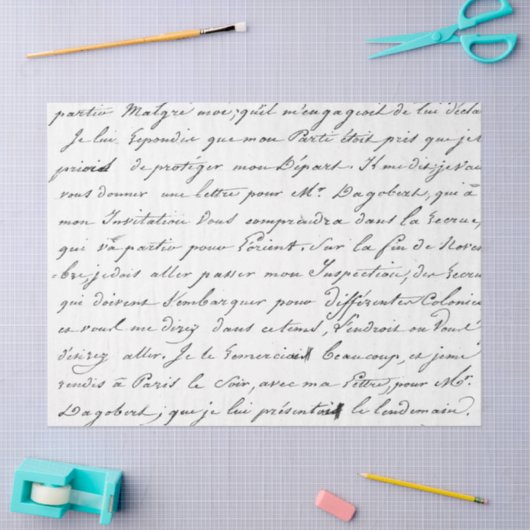 partir Malgré moi; qu'il m'engageoit de lui décla
Je lui repondis que mon Parti étoit pris que je
priois de protéger mon Départ. Il me dit; je vai
vous donner une lettre pour Mr. Dagobert, qui à
mon Invitation vous comprendra dans la recrue,
qui va partir pour l'orient. Sur la fin de Novem
-bre, je dois aller passer mon Inspection, des recru
qui doivent s'embarquer pour différentes Colonie
et vous me direz dans ce tems, l'endroit ou vous
désirez aller. Je le remerciai beaucoup, et je me
rendis à Paris le Soir, avec ma lettre, pour Mr.
Dagobert; que je lui présentai le lendemain.